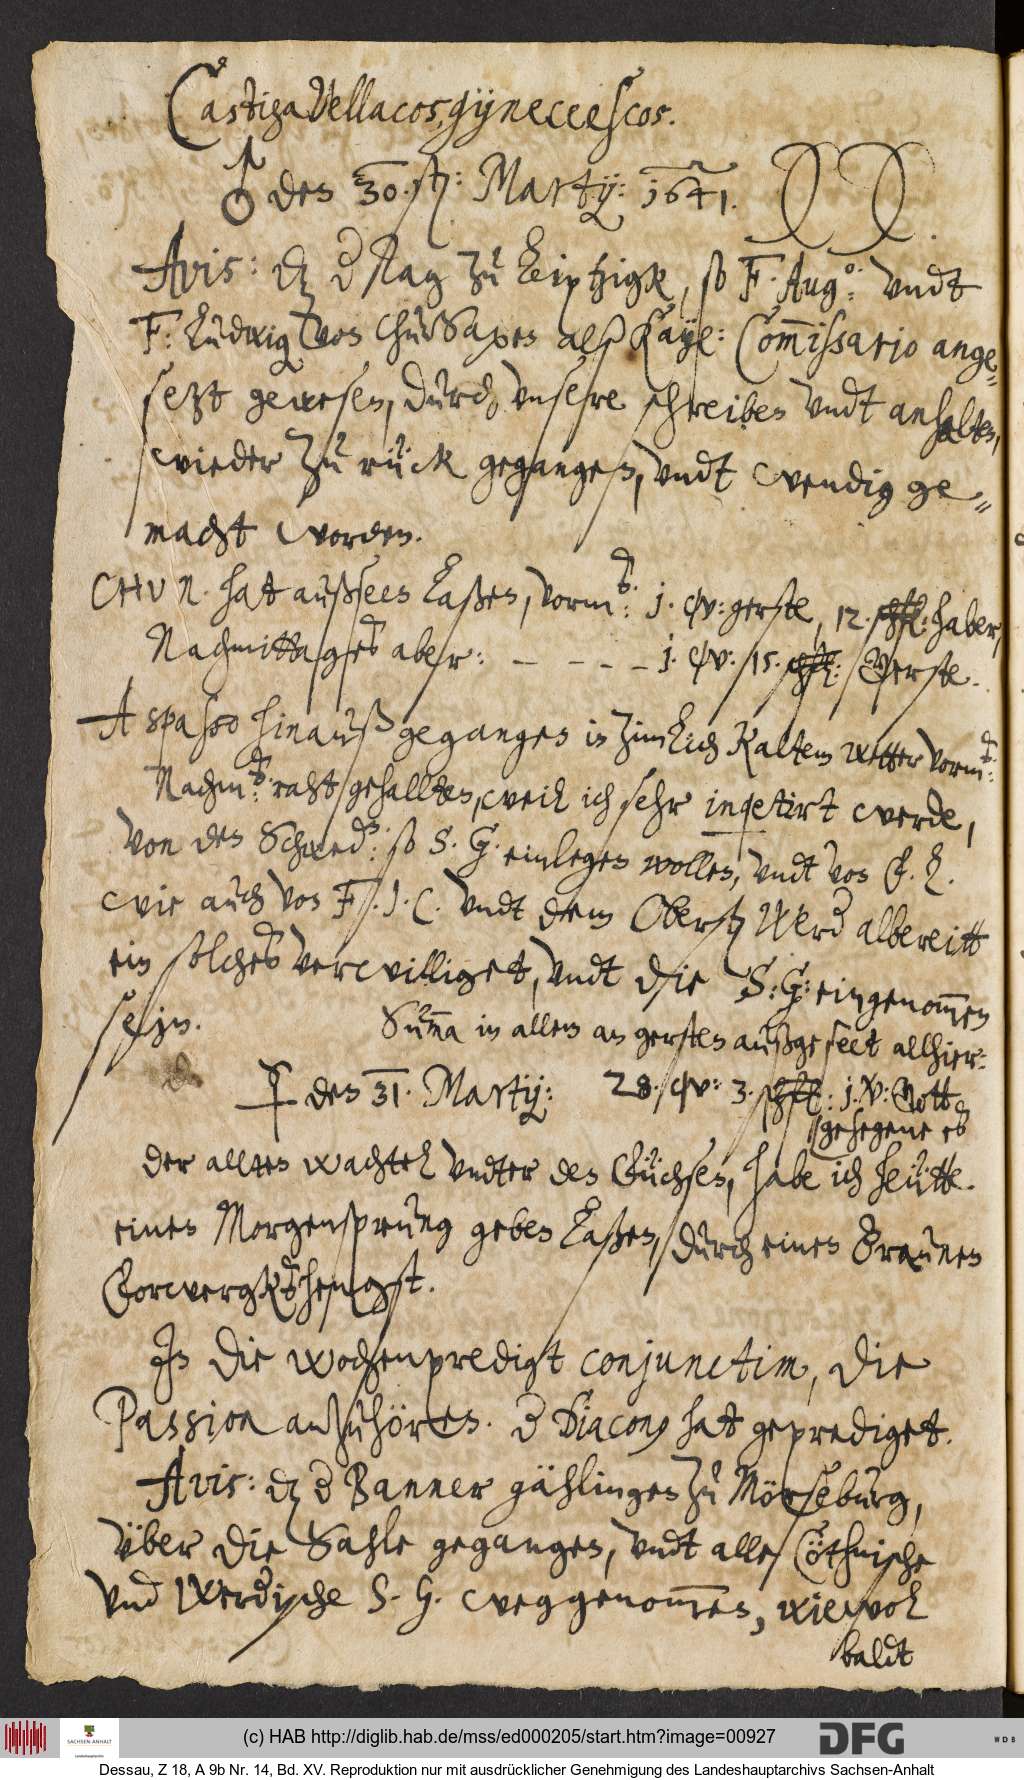 Castiga Vellacos, gÿneccescos.
♂ den 30. sten: Martÿ: 1641.
Avis: dz der Tag zu Leiptzigk, so F. Aug°: undt
F: Ludwig von ChurSaxen alß Kayl: Com̅issario ange=
setzt gewesen, durch unsere schreiben undt anhalten,
wieder zu rück gegangen, undt wendig ge=
macht worden.
hat außseen laßen, vorm: 1. W: gerste, 12. schfl: haber,
Nachmittages aber: – – – – 1. W: 15. schfl: Gerste.
A spasso hinauß gegangen in zimlich kaltem wetter vorm:
Nachm: raht gehallten, weil ich sehr inqetirt werde,
von den Schwed: so S. G. einlegen wollen, undt von
wie auch von F. J. C. undt dem Oberst Werder albereitt
ein solches verwilliget, undt die S: G: eingenom̅en
sein.
Sum̅a in allem an gersten außgeseet allhier:
den 31. Martÿ:
28. W: 3. schfl: 1. V: Gott
gesegene es
der allten wachtel undter den Füchsen, habe ich heütte
einen Morgensprung geben laßen, durch einen Braunen
Vorwergkshengst.
In die wochenpredigt conjunctim, die
Passion anzuhören. der Diacony hat geprediget.
Avis: dz der Banner gählingen zu Mörseburg,
über die Sahle gegangen, undt alle Cöthnische
und Werdische S. G. weggenom̅en, wiewol
baldt
(c) HAB http://diglib.hab.de/mss/ed000205/start.htm?image=00927
SACHSEN-ANHALT
Landeshauptarchiv
DFG
WDB
Dessau, Z 18, A 9b Nr. 14, Bd. XV. Reproduktion nur mit ausdrücklicher Genehmigung des Landeshauptarchivs Sachsen-Anhalt